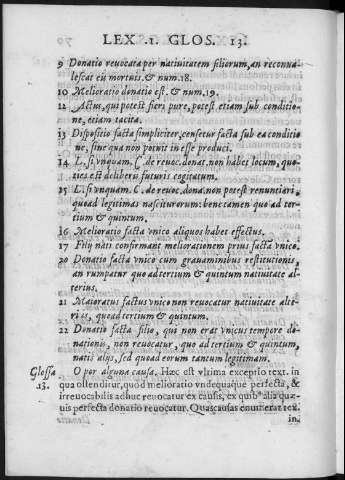 LEX .1. GLOS. 13.
9 Donatio reuocata per natiuitatem filiorum, an reconua
lescat eis mortuis. & num. 18.
10 Melioratio donatio est. & num. 19.
12 Actus, qui potest fieri pure, potest etiam sub conditio
ne, etiam tacita.
13 Dispositio facta simpliciter, censetur facta sub ea conditio
ne, sine qua non potuit in esse produci.
14 L. si vnquam. C. de reuoc. donat. non habet locum, quo-
ties est deliberū futuris cogitatum.
15 L. si vnquam. C. de reuoc. dona. non potest renuntiari,
quoad legitimas nasciturorum: bene tamen quo ad ter-
tium & quintum.
16 Melioratio facta vnico aliquos habet effectus.
17 Filij nati confirmant meliorationem prius facta vnico.
20 Donatio facta vnico cum grauaminibus restitutionis,
an rumpatur quo ad tertium & quintum natiuitate al-
terius.
21 Maioratus factus vnico non reuocatur natiuitate alte-
rius, quoad tertium & quintum.
22 Donatio facta filio, qui non erat vnicus tempore do-
nationis, non reuocatur, quo ad tertium & quintum,
natis alijs, sed quoad eorum tantum legitimam.
Glossa O por alguna causa. Hæc est vltima exceptio text. in
13. qua ostenditur, quod melioratio vndequaque perfecta, &
irreuocabilis adhuc reuocatur ex causis, ex quibꝰ alia quæ-
uis perfecta donatio reuocatur. Quas causas enumerat tex.
in.